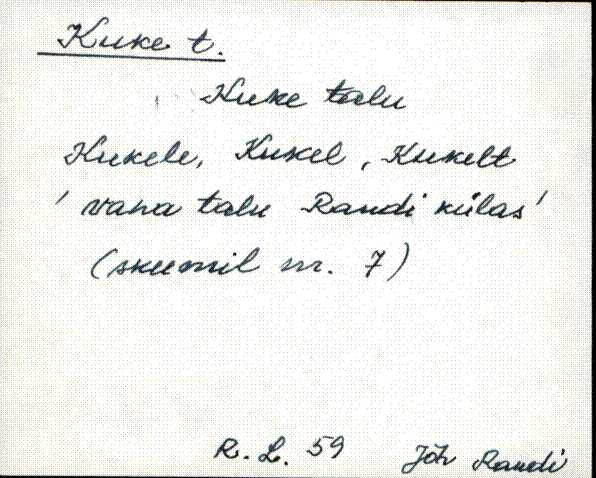 Kuke t.
Kuke talu
Kukele, Kukel, Kukelt
'vana talu Randi külas'
(skeemil nr. 7)
R. L. 59 Jõh Randi